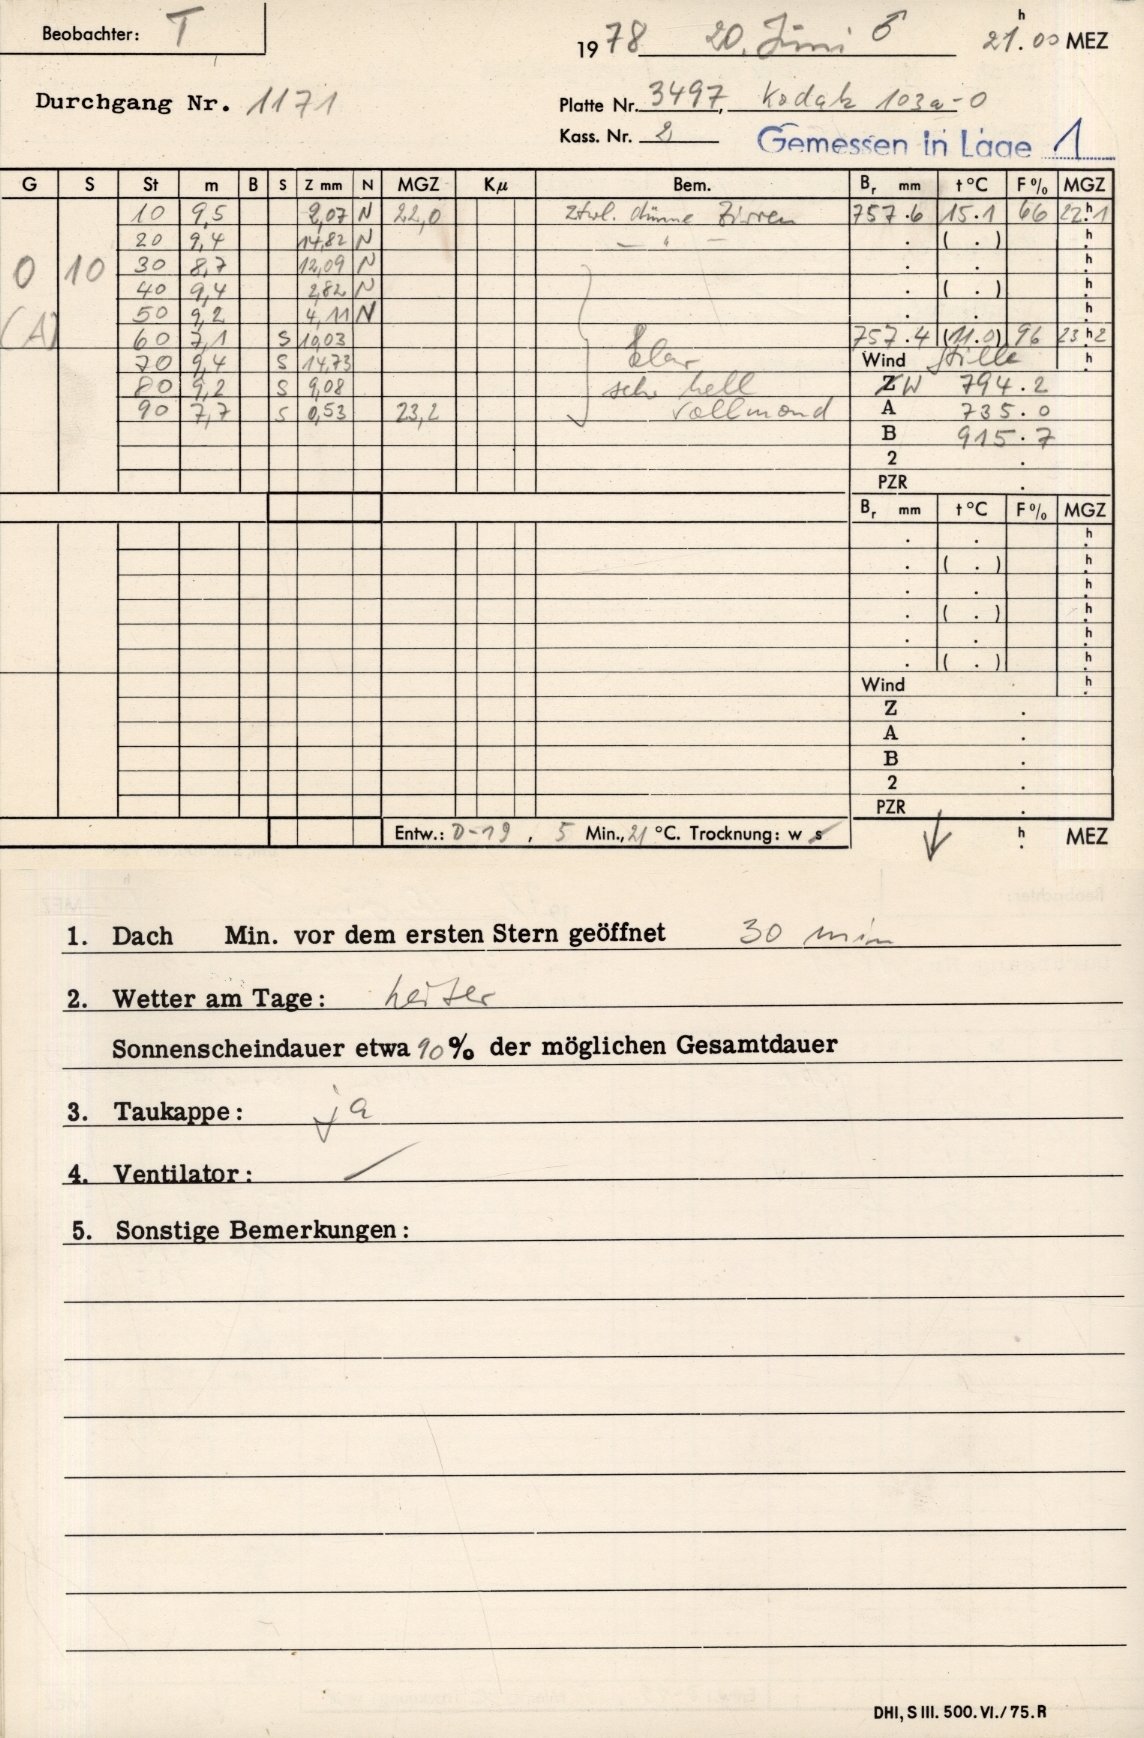 Beobachter: T
1978 20. Juni ♂ 21h.00 MEZ
Durchgang Nr. 1171
Platte Nr. 3497, Kodak 103a-O
Kass. Nr. 2
Gemessen in Lage 1
G S St m B S Z mm N MGZ Kμ Bem. Br mm t °C F % MGZ
10 9,5 2,07 N 22,0 ztwl. dünne Zirren 757.6 15.1 66 22h.1
20 9,4 14,82 N — " — . ( . ) h.
0 10 30 8,7 12,09 N . . h.
40 9,4 2,82 N . ( . ) h.
50 9,2 4,11 N . . h.
(A) 60 7,1 S 10,03 klar 757.4 (11.0) 96 23h2
70 9,4 S 14,73 Wind stille h.
80 9,2 S 9,08 sehr hell Z W 794.2
90 7,7 S 0,53 23,2 Vollmond A 735.0
B 915.7
2 .
PZR .
Br mm t °C F % MGZ
. . h.
. ( . ) h.
. . h.
. ( . ) h.
. . h.
. ( . ) h.
Wind h.
Z .
A .
B .
2 .
PZR .
Entw.: D-19, 5 Min., 21 °C. Trocknung: w s h. MEZ
1. Dach Min. vor dem ersten Stern geöffnet 30 min
2. Wetter am Tage: heiter
Sonnenscheindauer etwa 90% der möglichen Gesamtdauer
3. Taukappe: ja
4. Ventilator: /
5. Sonstige Bemerkungen:
DHI, S III. 500. VI./75. R